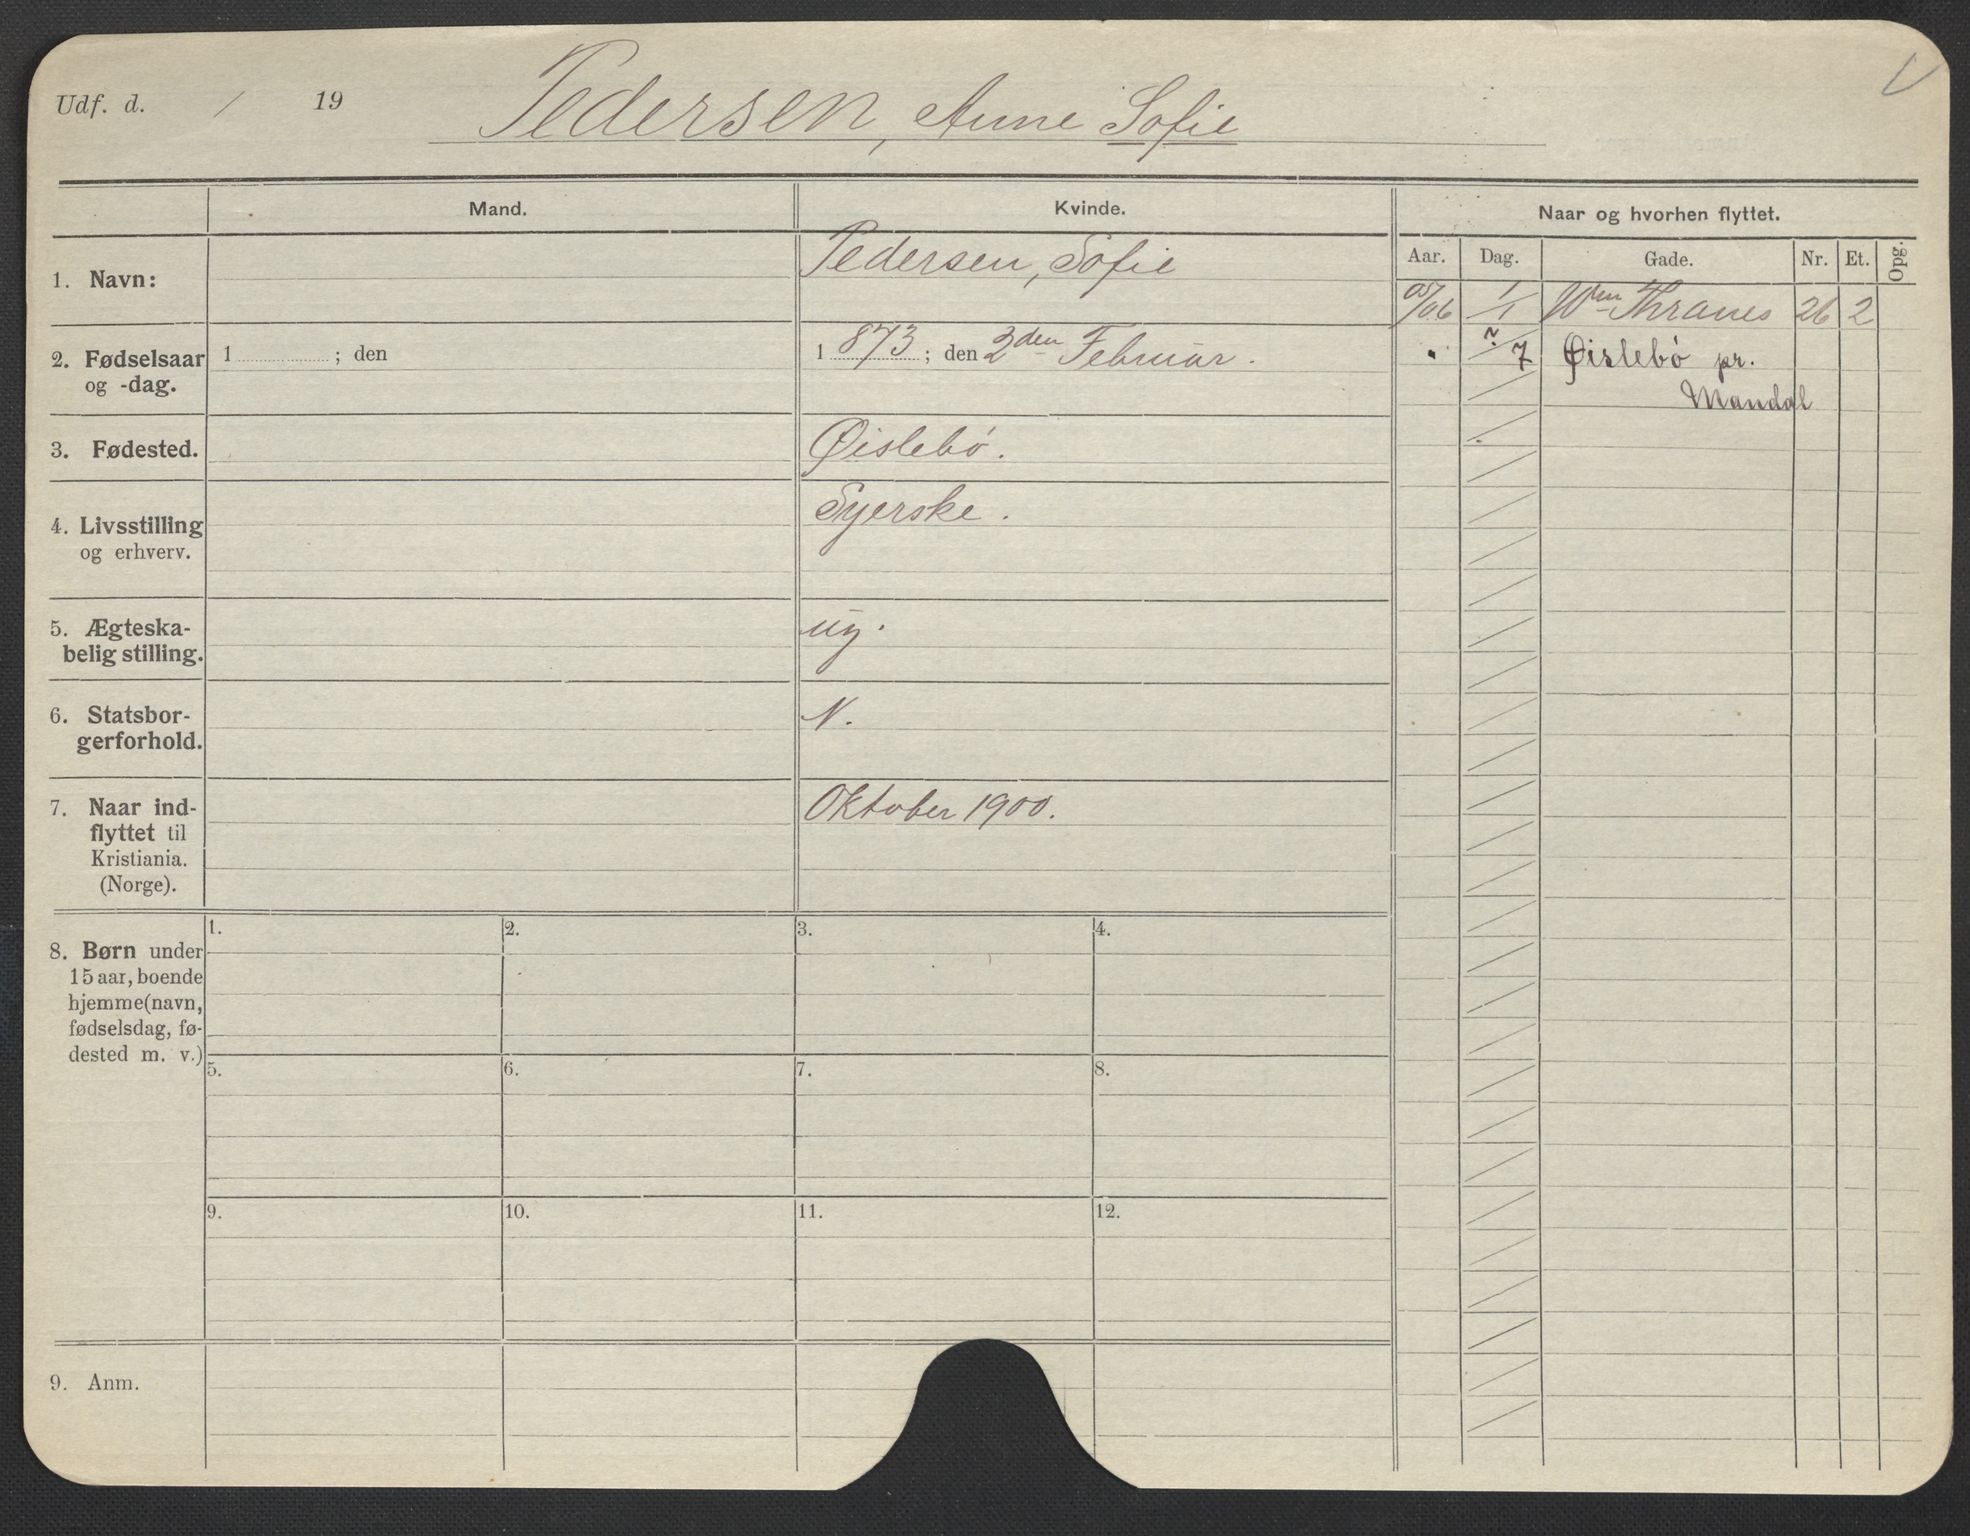 Udf. d. / 19
Pedersen, Anne Sofie
Mand.
Kvinde.
Naar og hvorhen flyttet.
Aar. Dag. Gade. Nr. Et. Opg.
1. Navn:
Pedersen, Sofie
05/06 1/1 Wm Thranes 26 2
2. Fødselsaar
og -dag.
1 ; den
1873 ; den 2den Februar.
" ~/7 Øislebø pr.
Mandal
3. Fødested.
Øislebø.
4. Livsstilling
og erhverv.
Syerske.
5. Ægteska-
belig stilling.
ug.
6. Statsbor-
gerforhold.
N.
7. Naar ind-
flyttet til
Kristiania.
(Norge).
Oktober 1900.
8. Børn under
15 aar, boende
hjemme (navn,
fødselsdag, fø-
dested m. v.)
1. 2. 3. 4.
5. 6. 7. 8.
9. 10. 11. 12.
9. Anm.